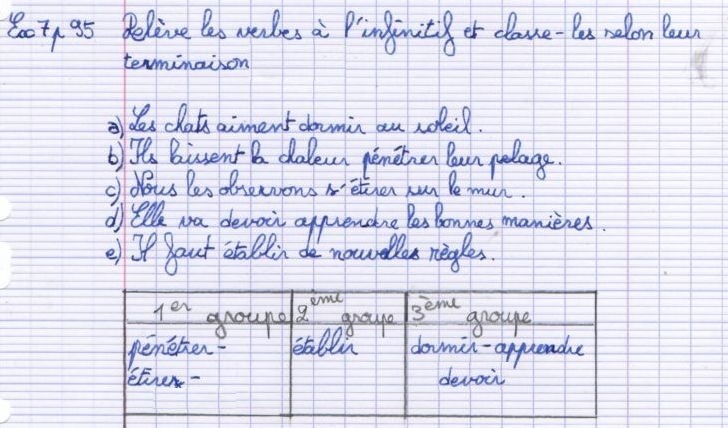 Exo 7 p 95 Relève les verbes à l'infinitif et classe-les selon leur
terminaison
a) Les chats aiment dormir au soleil.
b) Ils laissent la chaleur pénétrer leur pelage.
c) Nous les observons s'étirer sur le mur.
d) Elle va devoir apprendre les bonnes manières.
e) Il faut établir de nouvelles règles.
1er groupe 2ème groupe 3ème groupe
pénétrer - établir dormir - apprendre
étirer - devoir